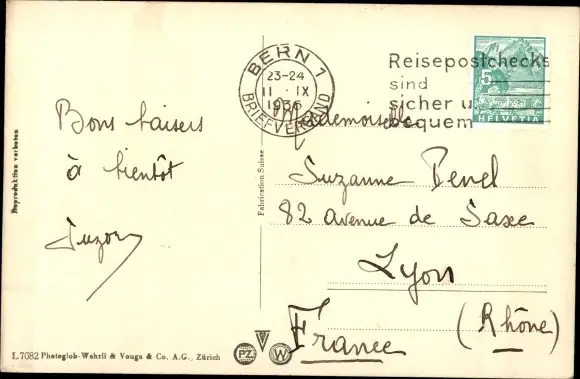 Bons baisers
à bientôt
Suzon
Reproduktion verboten
L 7682 Photoglob-Wehrli & Vouga & Co. A.G., Zürich
Fabrication Suisse
PZ
W
BERN 1
23-24
11 · IX
1936
BRIEFVERSAND
Reisepostchecks
sind
sicher u
bequem
5
HELVETIA
Mademoiselle
Suzanne Penel
82 avenue de Saxe
Lyon
(Rhône)
France